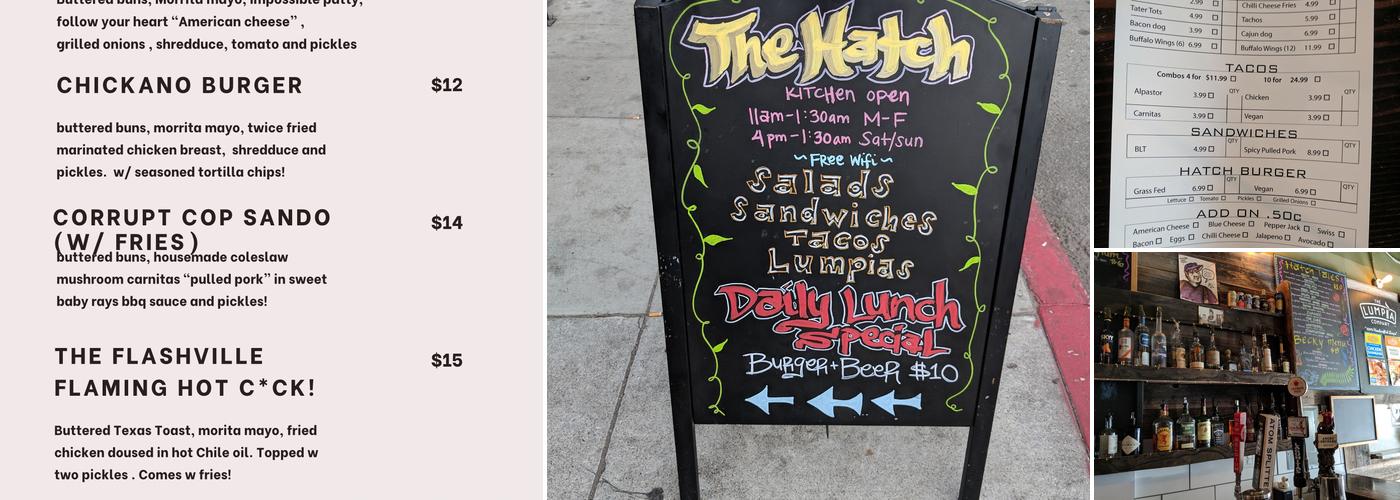 Buttered buns, Morrita mayo, impossible patty,
follow your heart “American cheese” ,
grilled onions , shredduce, tomato and pickles
CHICKANO BURGER $12
buttered buns, morrita mayo, twice fried
marinated chicken breast, shredduce and
pickles. w/ seasoned tortilla chips!
CORRUPT COP SANDO $14
(W/ FRIES)
buttered buns, housemade coleslaw
mushroom carnitas “pulled pork” in sweet
baby rays bbq sauce and pickles!
THE FLASHVILLE $15
FLAMING HOT C*CK!
Buttered Texas Toast, morita mayo, fried
chicken doused in hot Chile oil. Topped w
two pickles . Comes w fries!
The Hatch
KITCHEN open
11am-1:30am M-F
4pm-1:30am Sat/sun
~ FREE Wifi ~
Salads
Sandwiches
Tacos
Lumpias
Daily Lunch
Special
Burger+Beer $10
2.99 Chili Cheese Fries 4.99
Tater Tots 2.99 Tachos 5.99
Bacon dog 3.99 Cajun dog 6.99
Buffalo Wings (6) 6.99 Buffalo Wings (12) 11.99
TACOS
Combos 4 for $11.99 10 for 24.99
Alpastor 3.99 QTY Chicken 3.99 QTY
Carnitas 3.99 Vegan 3.99
SANDWICHES
BLT 4.99 QTY Spicy Pulled Pork 8.99 QTY
HATCH BURGER
Grass Fed 6.99 QTY Vegan 6.99 QTY
Lettuce Tomato Pickles Grilled Onions
ADD ON .50c
American Cheese Blue Cheese Pepper Jack Swiss
Bacon Eggs Chili Cheese Jalapeno Avocado
Hatch Tales
Becky Menu
THE
LUMPIA
COMPANY
ATOM SPLITTER